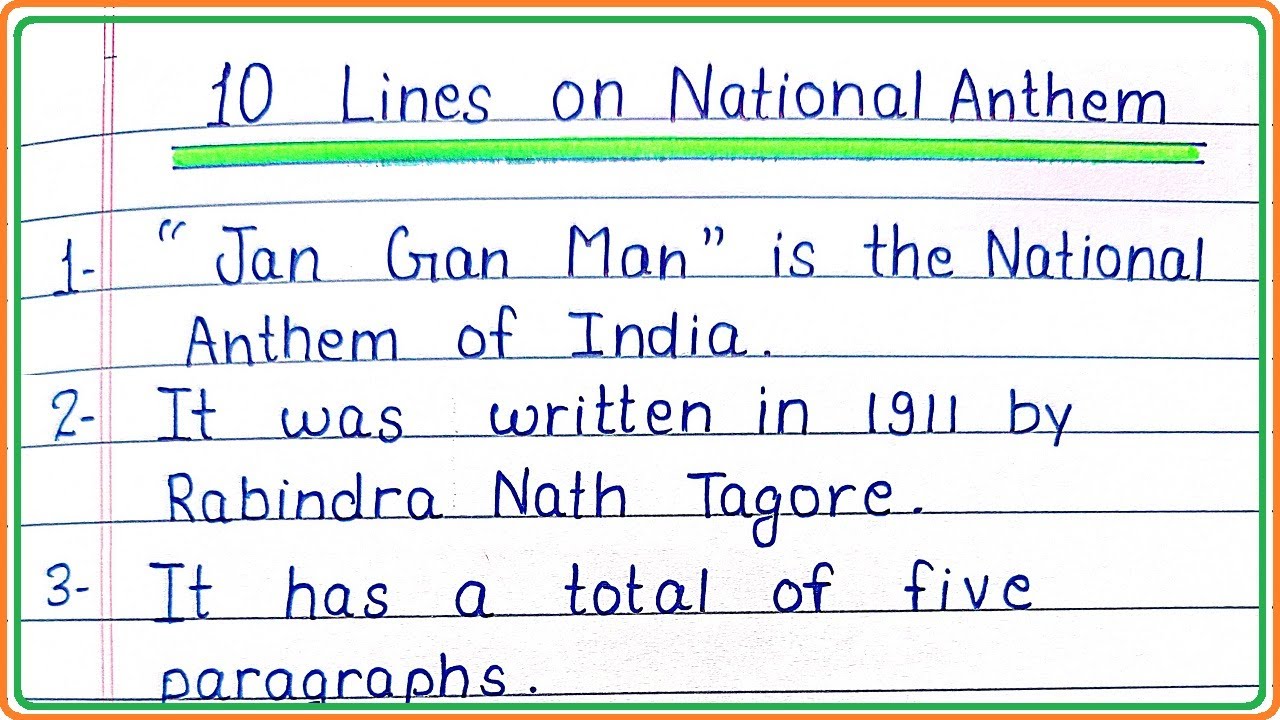 10 Lines on National Anthem
1- "Jan Gan Man" is the National
Anthem of India.
2- It was written in 1911 by
Rabindra Nath Tagore.
3- It has a total of five
paragraphs.